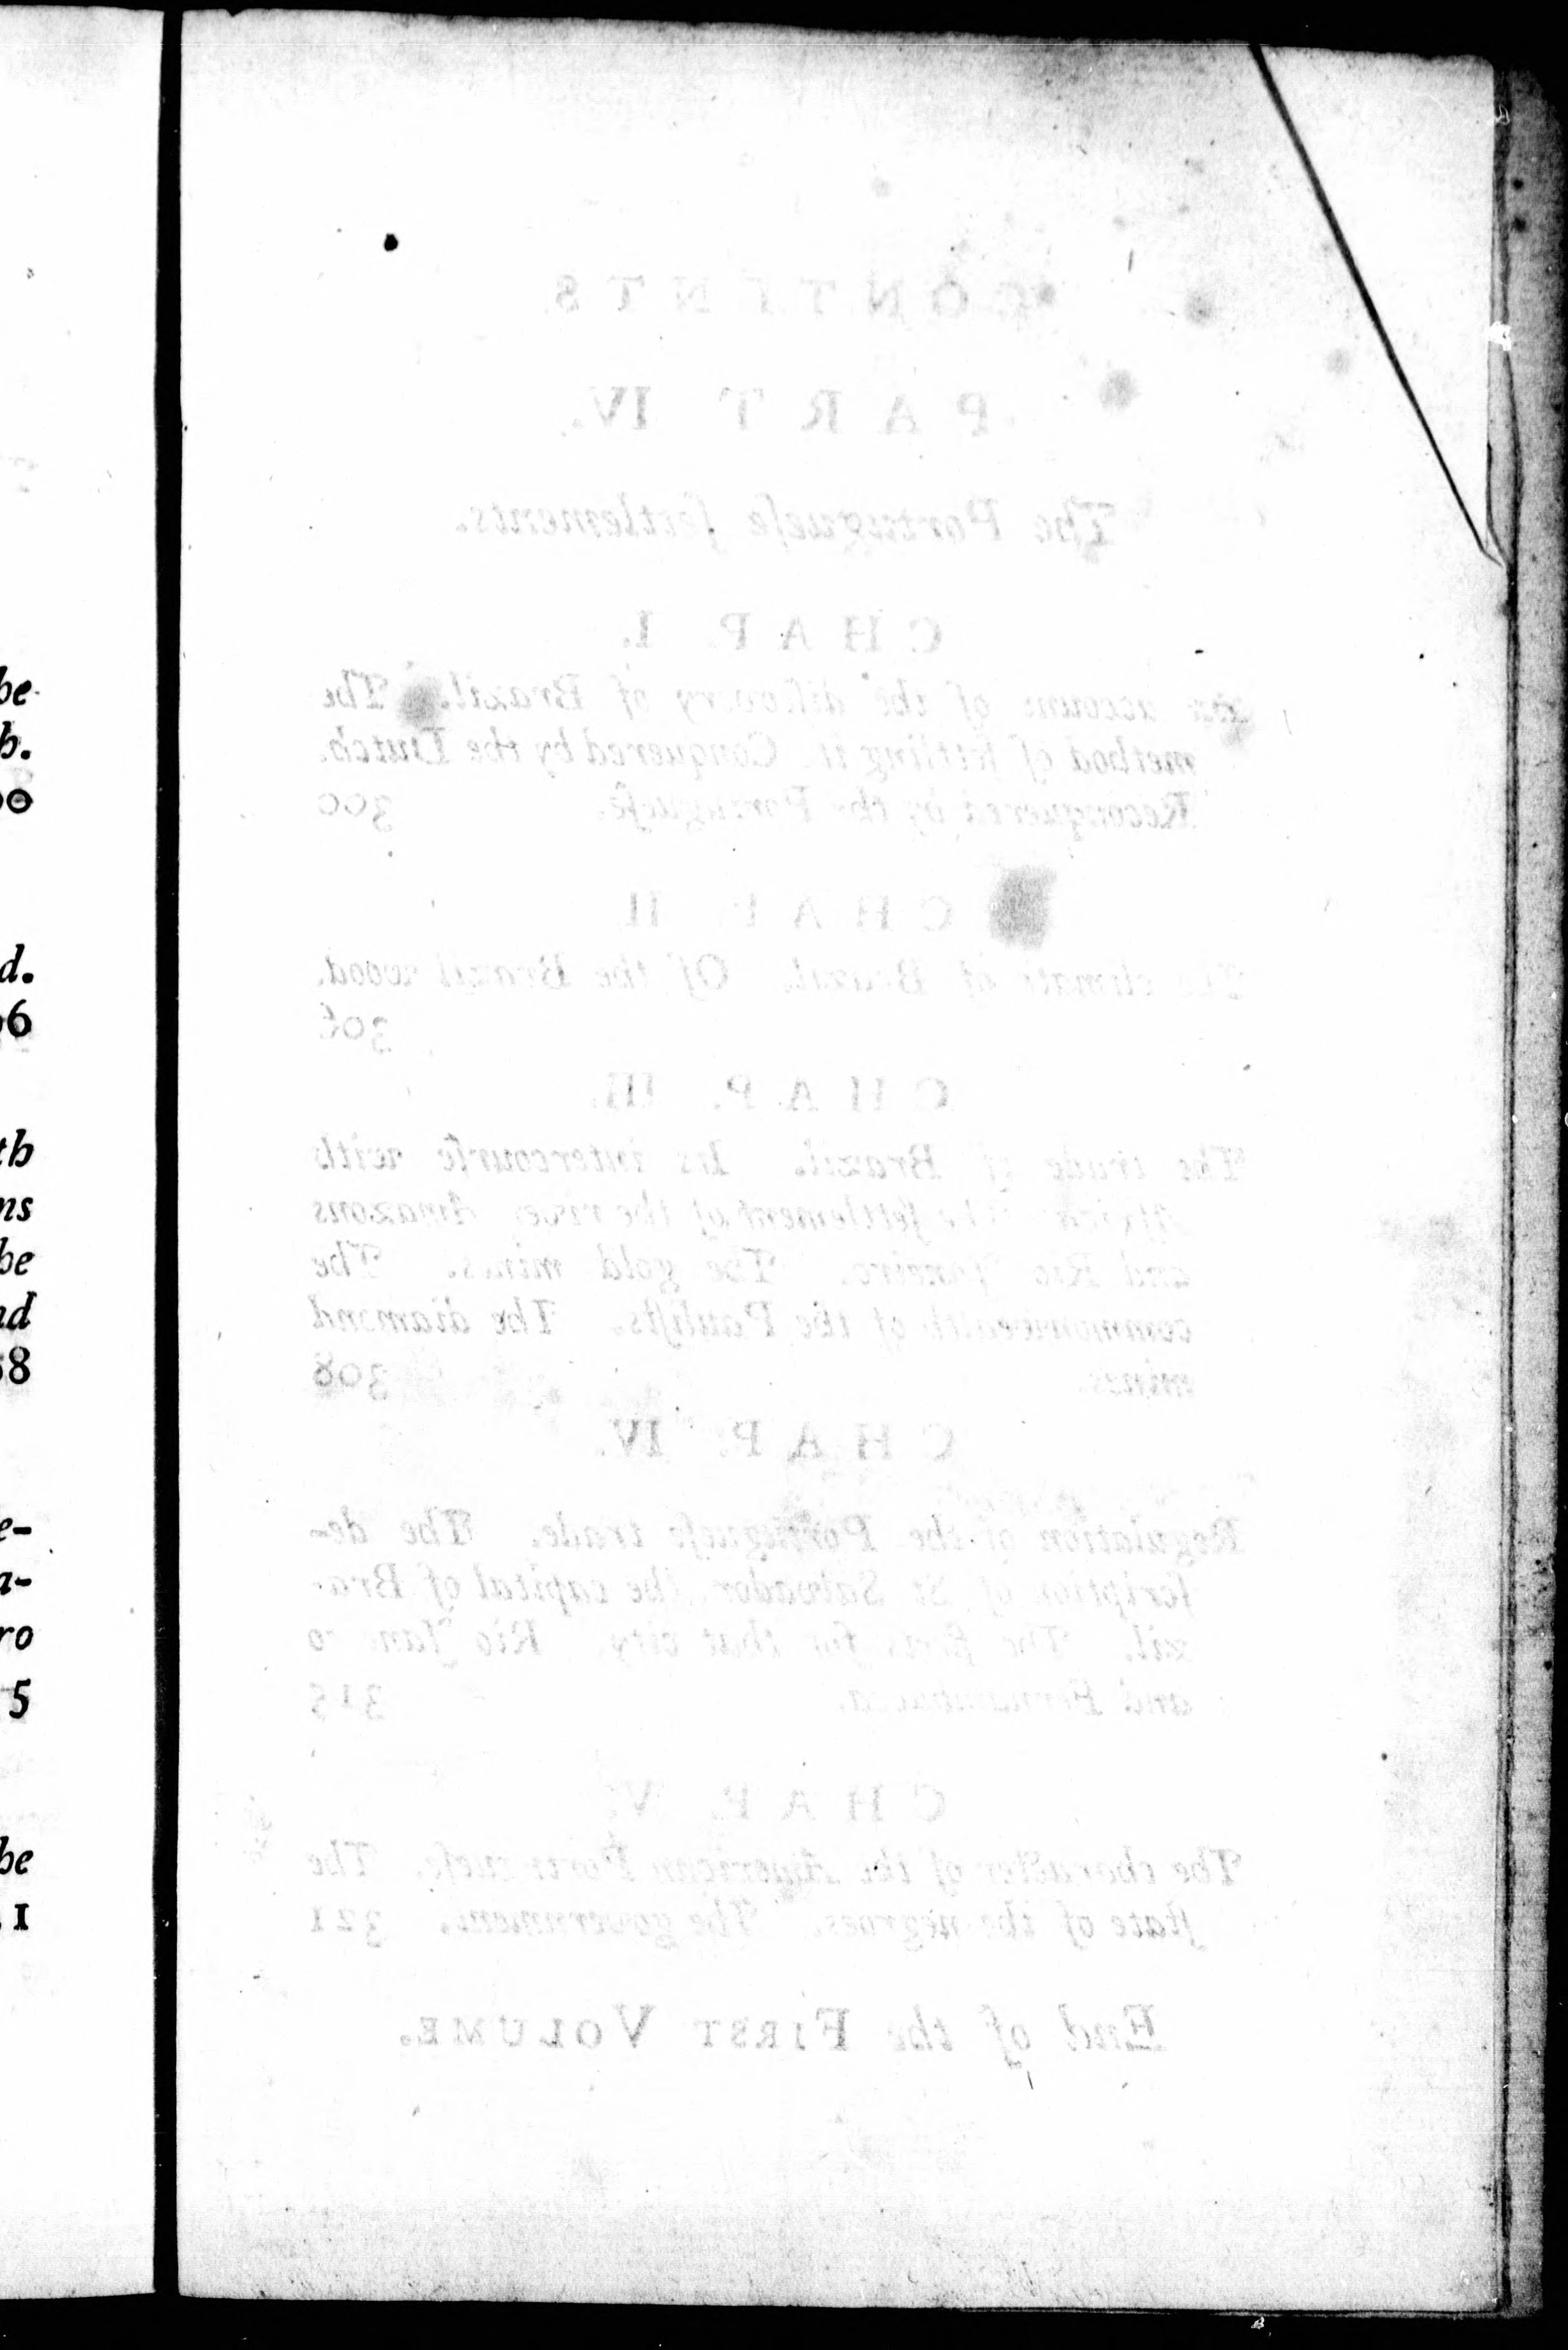 be
h.
00
d.
96
th
ns
be
nd
58
e-
a-
ro
5
be
1
CONTENTS
PART IV.
The Portugueſe ſettlements.
CHAP. I.
An account of the diſcovery of Brazil. The
method of ſettling it. Conquered by the Dutch.
Reconquered by the Portugueſe. 300
CHAP. II.
The climate of Brazil. Of the Brazil wood.
306
CHAP. III.
The trade of Brazil. Its intercourſe with
Africa. The ſettlement of the river Amazons
and Rio Janeiro. The gold mines. The
commonwealth of the Pauliſts. The diamond
mines. 308
CHAP. IV.
Regulation of the Portugueſe trade. The de-
ſcription of St Salvador the capital of Bra-
zil. The fleets for that city, Rio Janeiro
and Fernambucca. 315
CHAP. V.
The character of the American Portugueſe. The
ſtate of the negroes. The government. 321
End of the FIRST VOLUME.